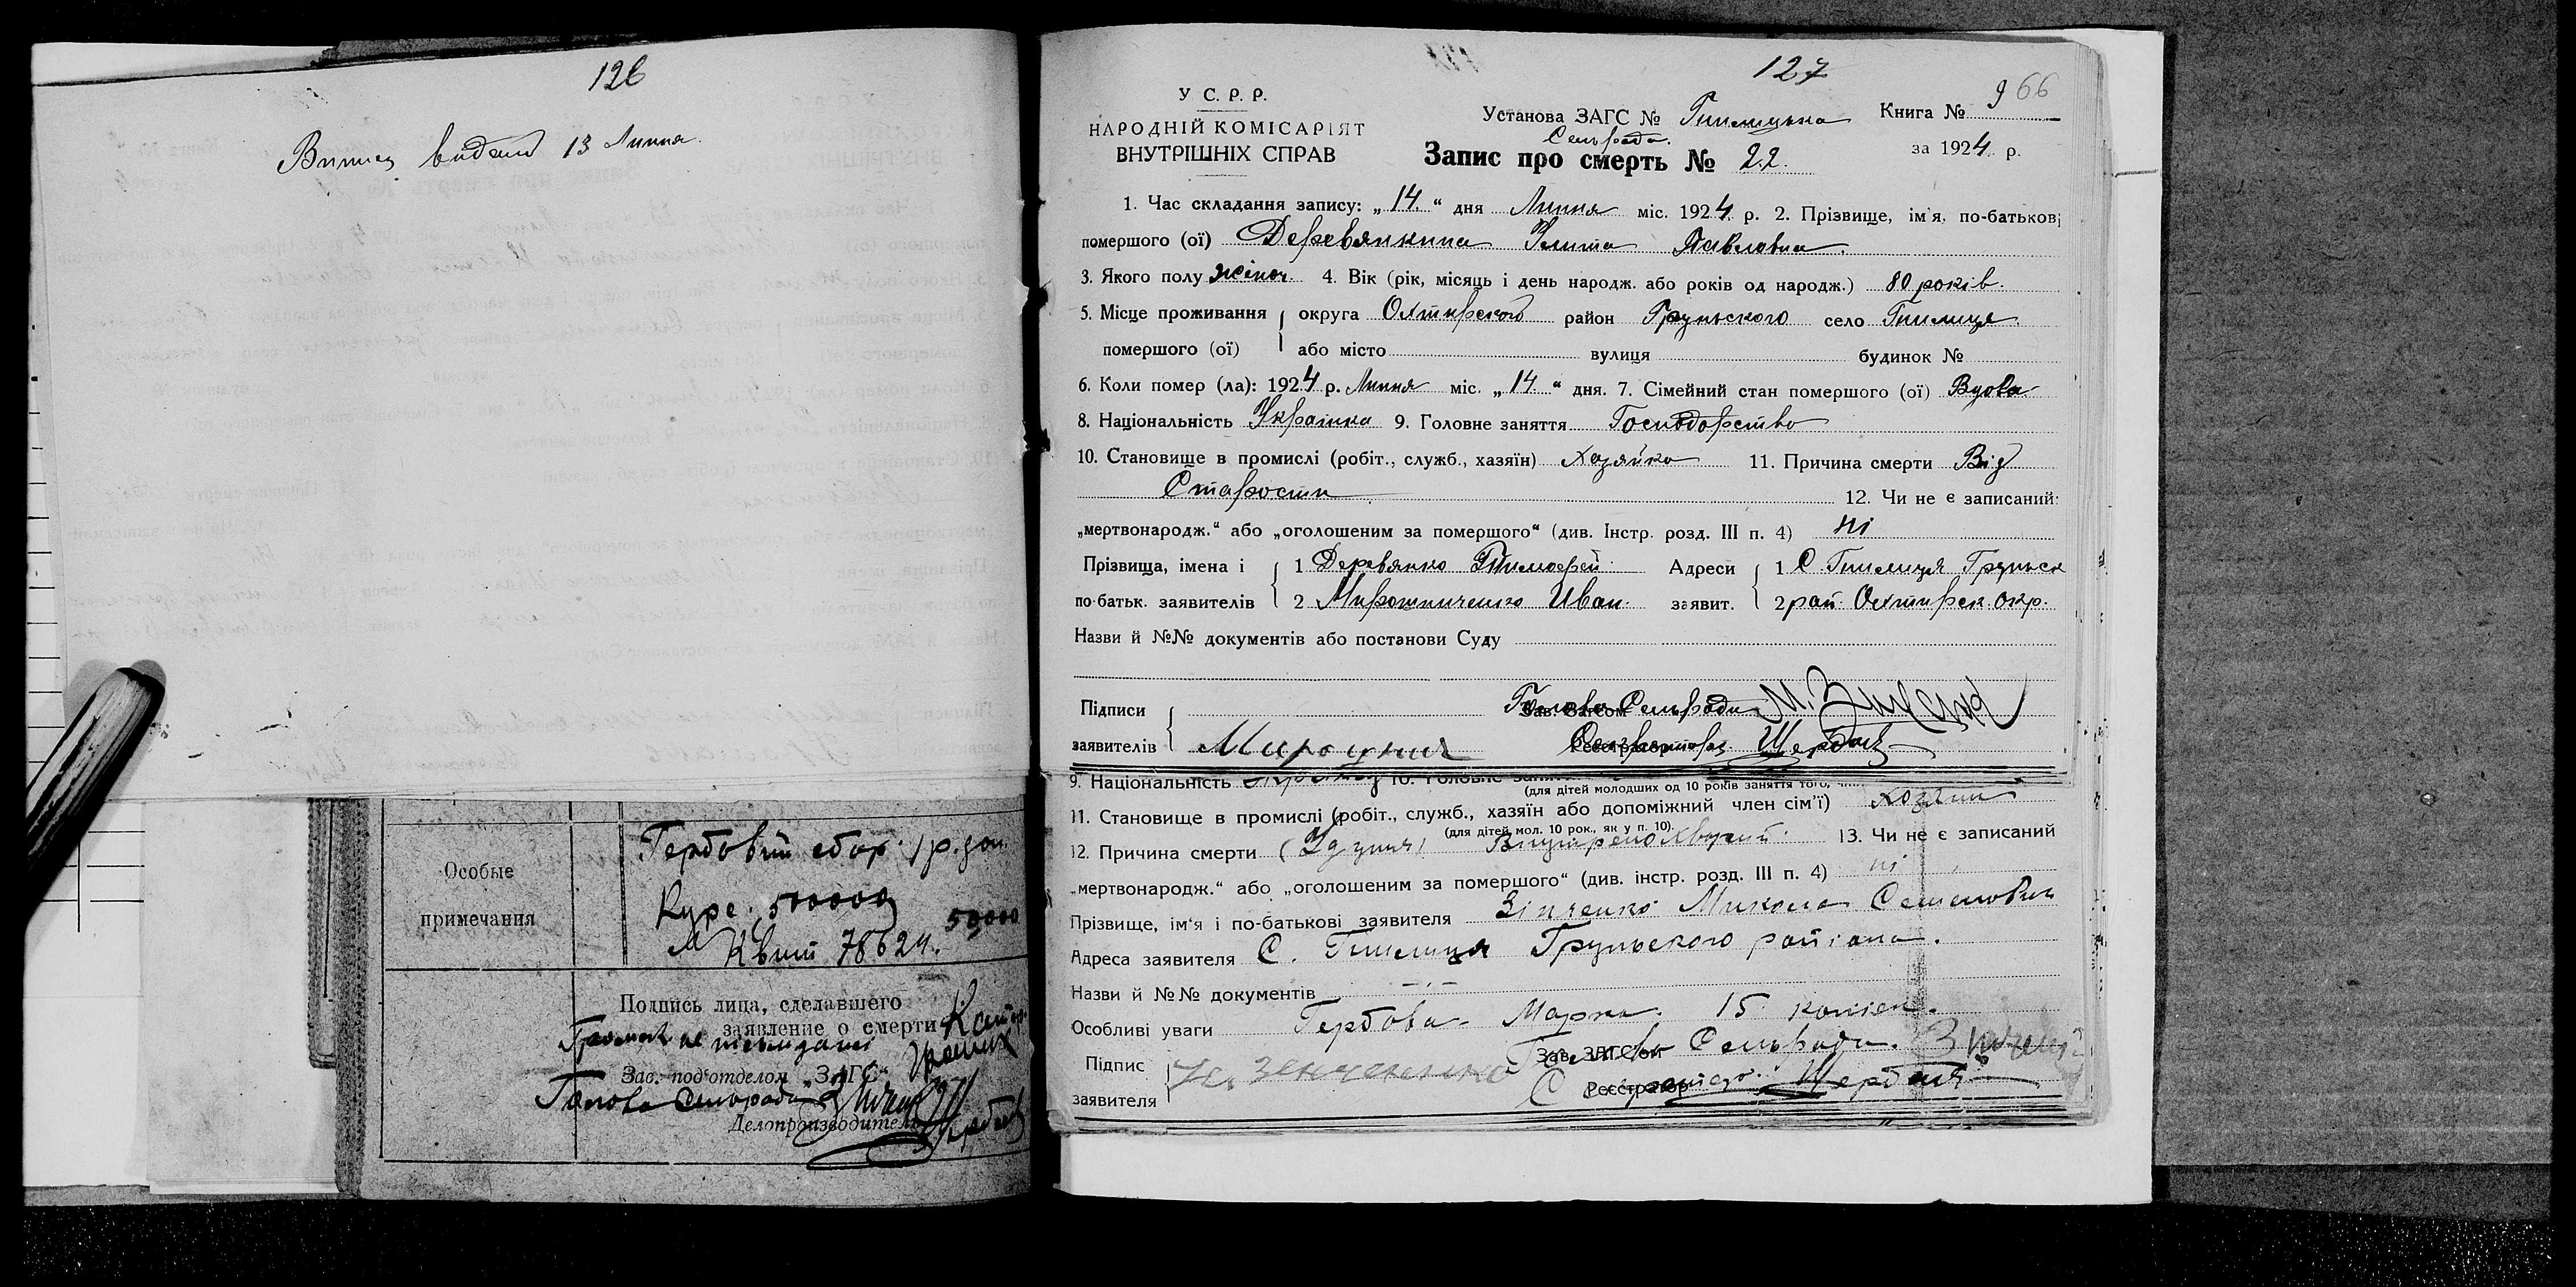 126
Випись видано 13 Липня.
Особые
примечания
Гербовий сбор 1 р. зол.
Курс. 500000
50,000
Квит 78624.
Подпись лица, сделавшего
заявление о смерти
Зав. под'отделом „ЗАГС"
Голова Сельради
Делопроизводитель
127
966
У С. Р. Р.
НАРОДНІЙ КОМІСАРІЯТ
ВНУТРІШНІХ СПРАВ
Установа ЗАГС № Гнилицька
Сельрада.
Книга №
за 1924 р.
Запис про смерть № 22.
1. Час складання запису: „14." дня Липня міс. 1924 р. 2. Прізвище, ім'я, по-батькові
помершого (ої) Деревянкина Улита Павловна.
3. Якого полу жіноч. 4. Вік (рік, місяць і день народж. або років од народж.) 80 років.
5. Місце проживання округа Охтирского район Грунського село Гнилиця.
помершого (ої) або місто вулиця будинок №
6. Коли помер (ла): 1924 р. Липня міс. „14." дня. 7. Сімейний стан помершого (ої) Вдова
8. Національність Українка 9. Головне заняття Господорство
10. Становище в промислі (робіт., служб., хазяїн) Хазяйка 11. Причина смерти Від
Старости 12. Чи не є записаний:
„мертвонародж." або „оголошеним за помершого" (див. Інстр. розд. III п. 4) ні
Прізвища, імена і 1 Деревянко Тимофей Адреси 1 С. Гнилиця Грунськ
по-батьк. заявителів 2 Мирошниченко Иван. заявит. 2 рай. Охтирск. окр.
Назви й №№ документів або постанови Суду
Підписи Голова Сельради
Зав. Загсом
заявителів Мирошнич Реєстратор Щербак
9. Національність 10. Головне
(для дітей молодших од 10 років заняття того,
11. Становище в промислі (робіт., служб., хазяїн або допоміжний член сім'ї) Хозяин
(для дітей мол. 10 рок., як у п. 10).
12. Причина смерти 13. Чи не є записаний
„мертвонародж." або „оголошеним за помершого" (див. інстр. розд. III п. 4) ні
Прізвище, ім'я і по-батькові заявителя Зінченко Микола Семенович
Адреса заявителя С. Гнилиця Грунського района.
Назви й №№ документів
Особливі уваги Гербова Марка. 15 копієк.
Підпис Голова Сельради.
Зав. ЗАГС'ом
заявителя Реєстратор Щербак